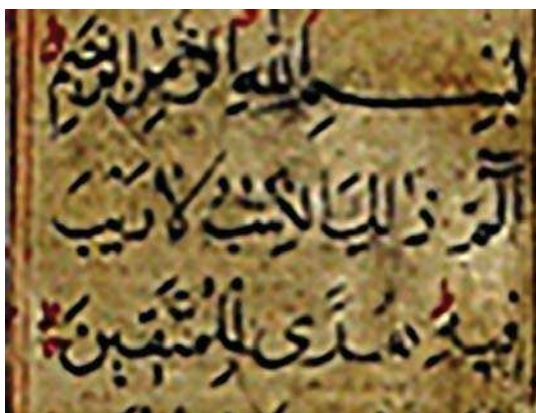 بِسْمِ اللهِ الرَّحْمٰنِ الرَّحِيمِ
الٓمّٓ ذٰلِكَ الْكِتٰبُ لَا رَيْبَ
فِيهِ هُدًى لِلْمُتَّقِينَ